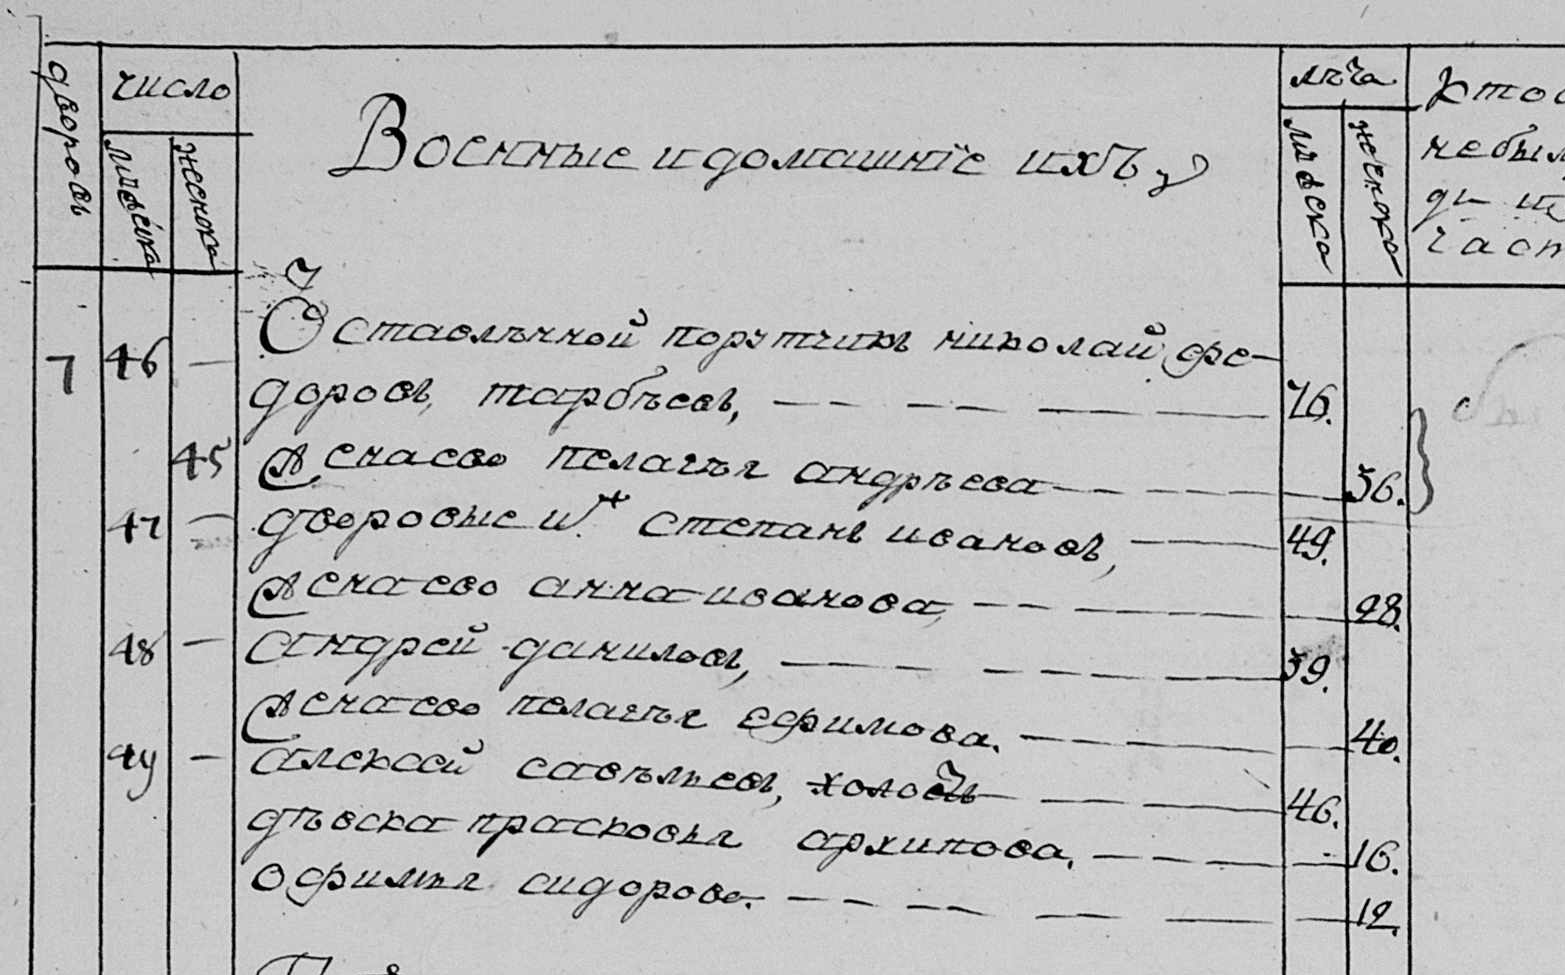 дворовъ
число
мужеска
женска
Военные и домашнïе ихъ
лѣта
мужеска
женска
кто
небыл
ди
част
7 46 — Отставлѣнной порутчикъ николай фе-
доровъ, тарбѣевъ, 76.
45 жена ево пелагѣя андрѣева 36.
47 — дворовые ихъ степанъ ивановъ, 49.
жена ево анна иванова, 28.
48 — андрей даниловъ, 39.
жена ево пелагѣя ефимова. 40.
49 — алексѣй савѣльевъ, холостъ 46.
дѣвка прасковья архипова. 16.
офимья сидорова. 12.